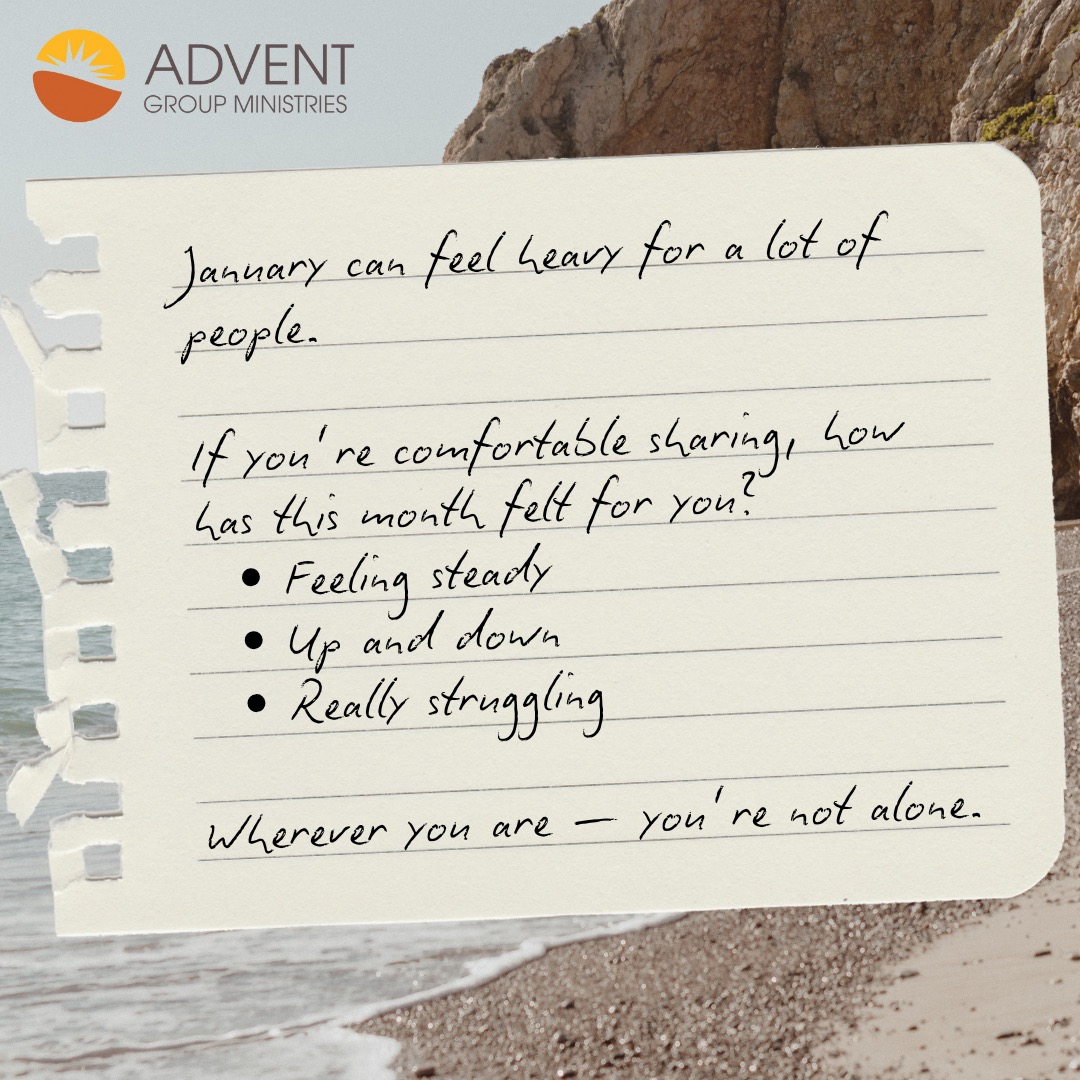 ADVENT
GROUP MINISTRIES
January can feel heavy for a lot of
people.
If you're comfortable sharing, how
has this month felt for you?
• Feeling steady
• Up and down
• Really struggling
Wherever you are — you're not alone.